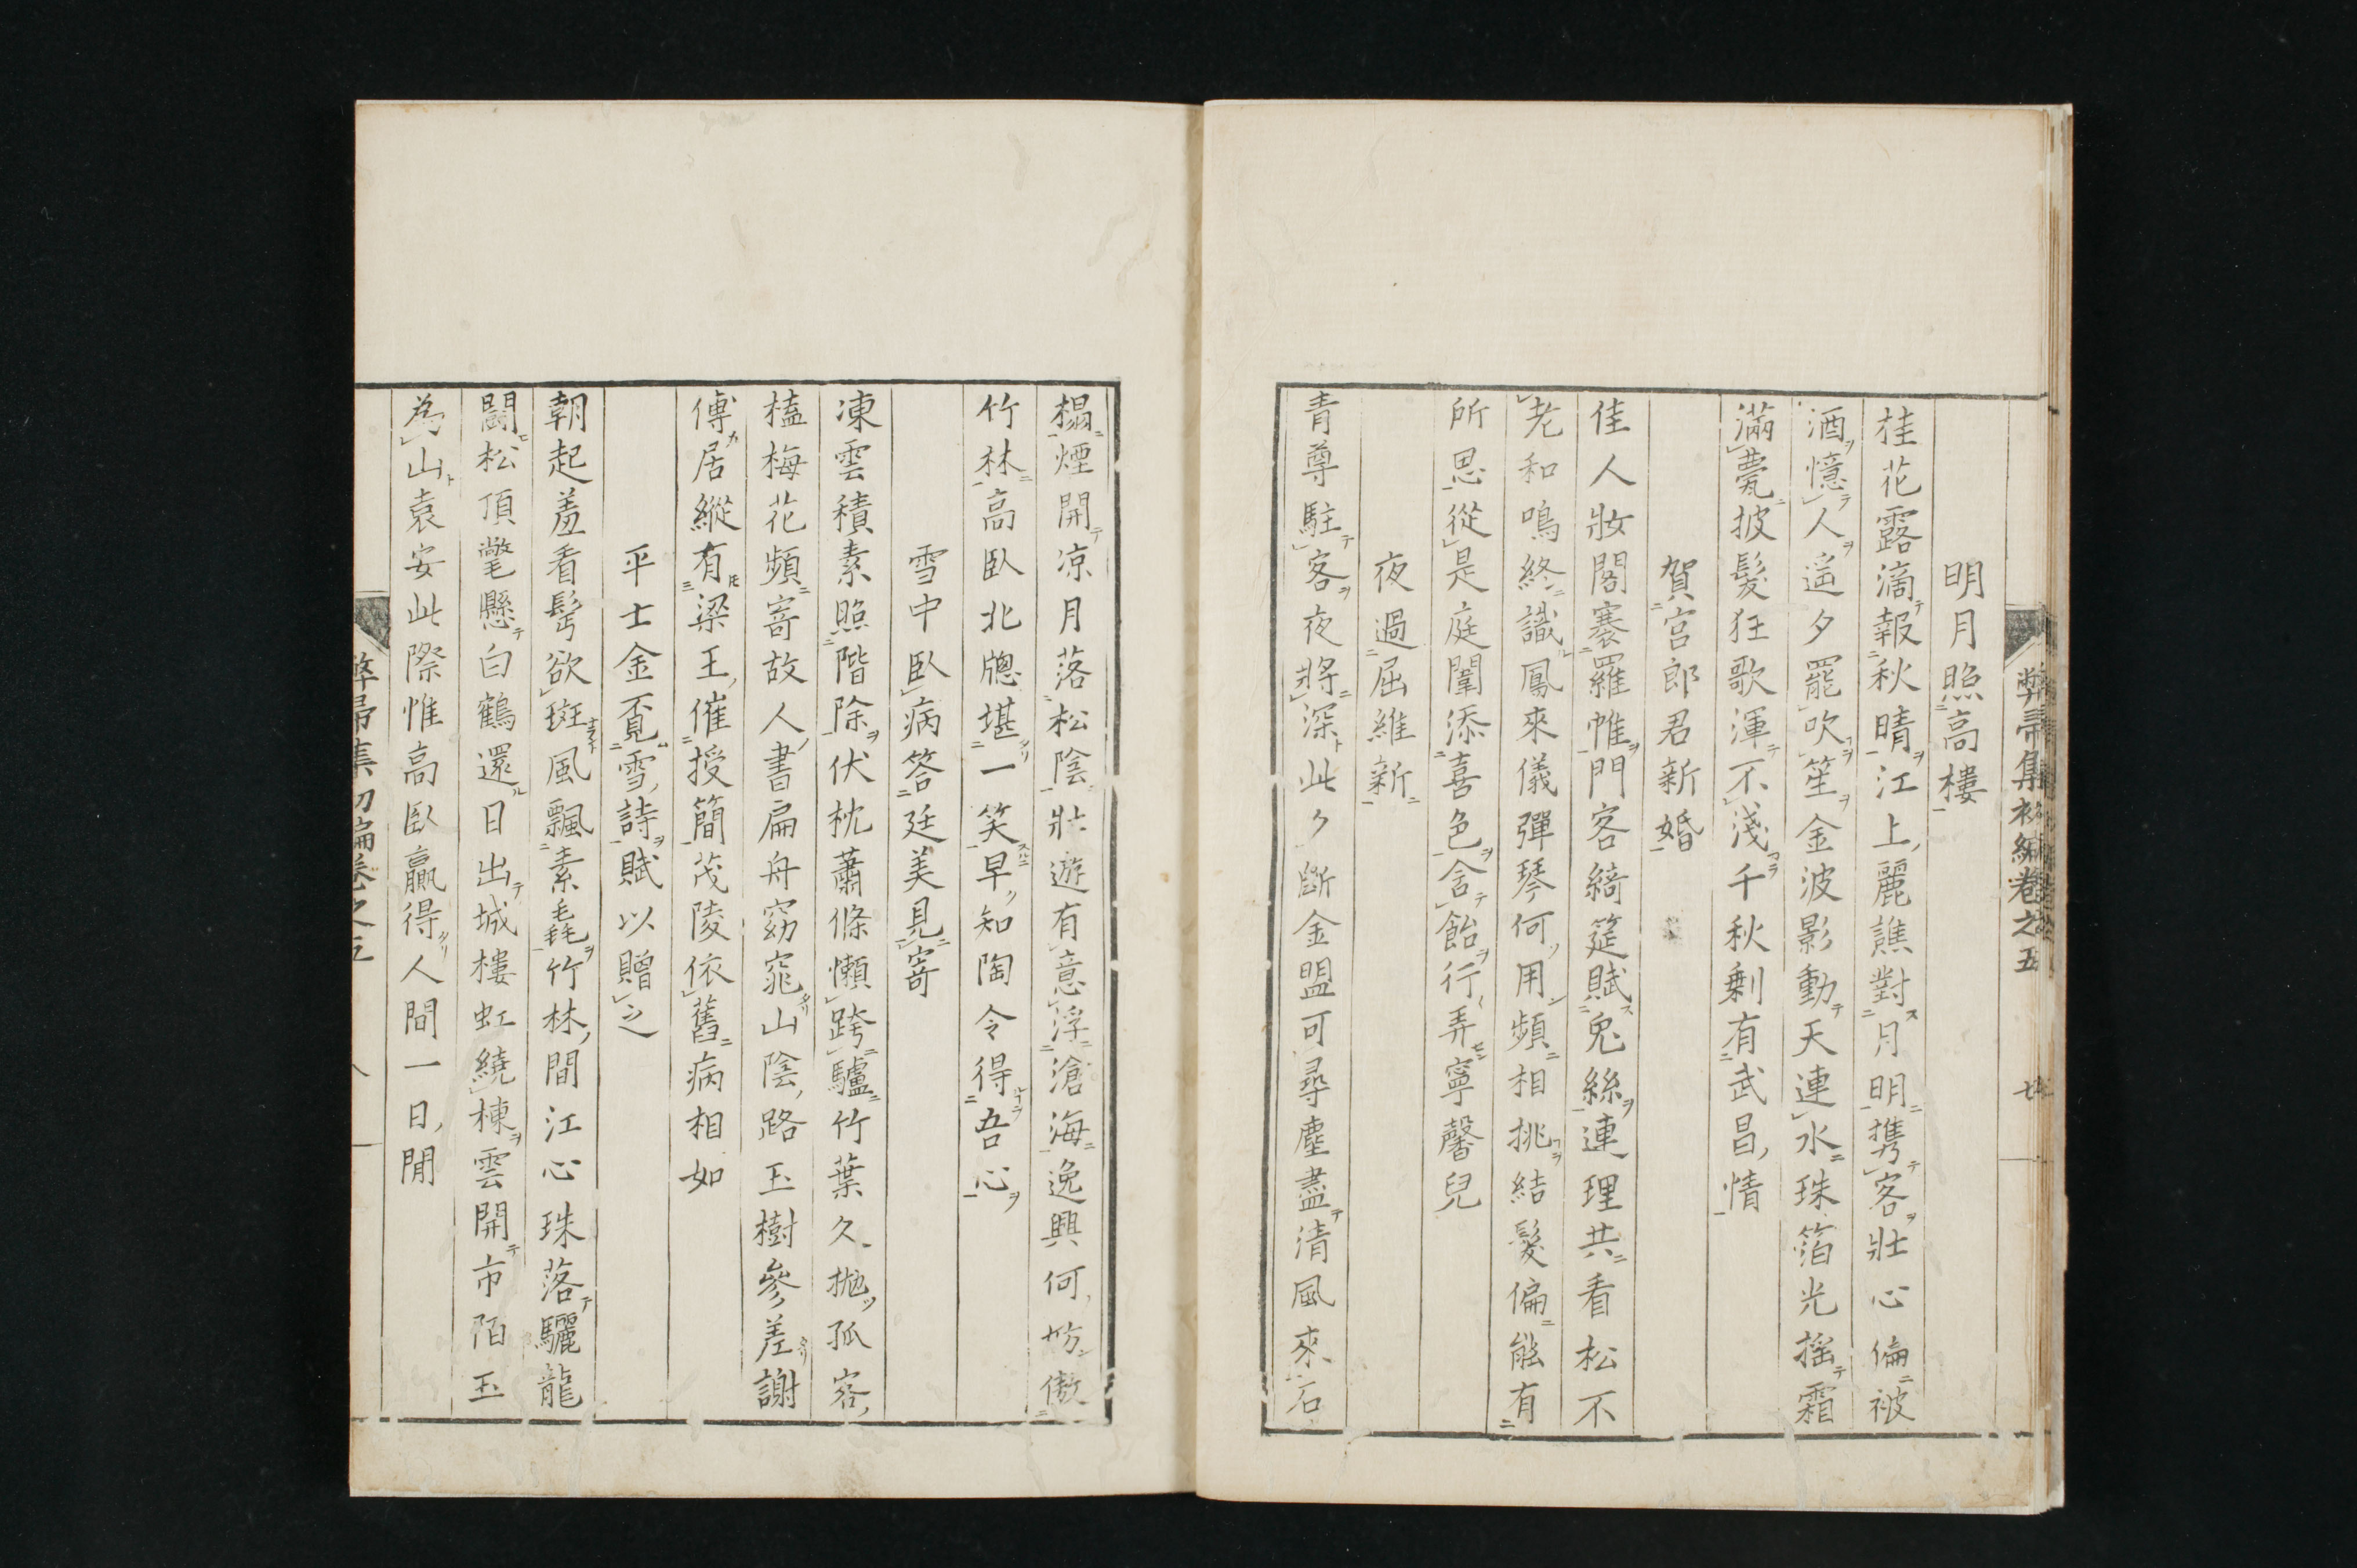 弊帚集初編卷之五
明月照高樓
桂花露滴報秋晴江上麗譙對月明携客壯心偏被
酒憶人遥夕罷吹笙金波影動天連水珠箔光揺霜
滿甍披髮狂歌渾不淺千秋剩有武昌情
賀宮郎君新婚
佳人妝閣褰羅帷門客綺筵賦兔絲連理共看松不
老和鳴終識鳳來儀彈琴何用頻相挑結髮偏能有
所思從是庭闈添喜色含飴行弄寧馨兒
夜過屈維新
青尊駐客夜將深此夕斷金盟可尋塵盡清風來石
榻煙開凉月落松陰壯遊有意浮滄海逸興何妨傲
竹林高臥北牕堪一笑早知陶令得吾心
雪中臥病答廷美見寄
凍雲積素照階除伏枕蕭條懶跨驢竹葉久抛孤客
榼梅花頻寄故人書扁舟窈窕山陰路玉樹參差謝
傅居縱有梁王催授簡茂陵依舊病相如
平士金覔雪詩賦以贈之
朝起羞看髩欲斑風飄素毳竹林間江心珠落驪龍
鬪松頂氅懸白鶴還日出城樓虹繞棟雲開市陌玉
為山袁安此際惟高臥贏得人間一日閒
弊帚集初編卷之五